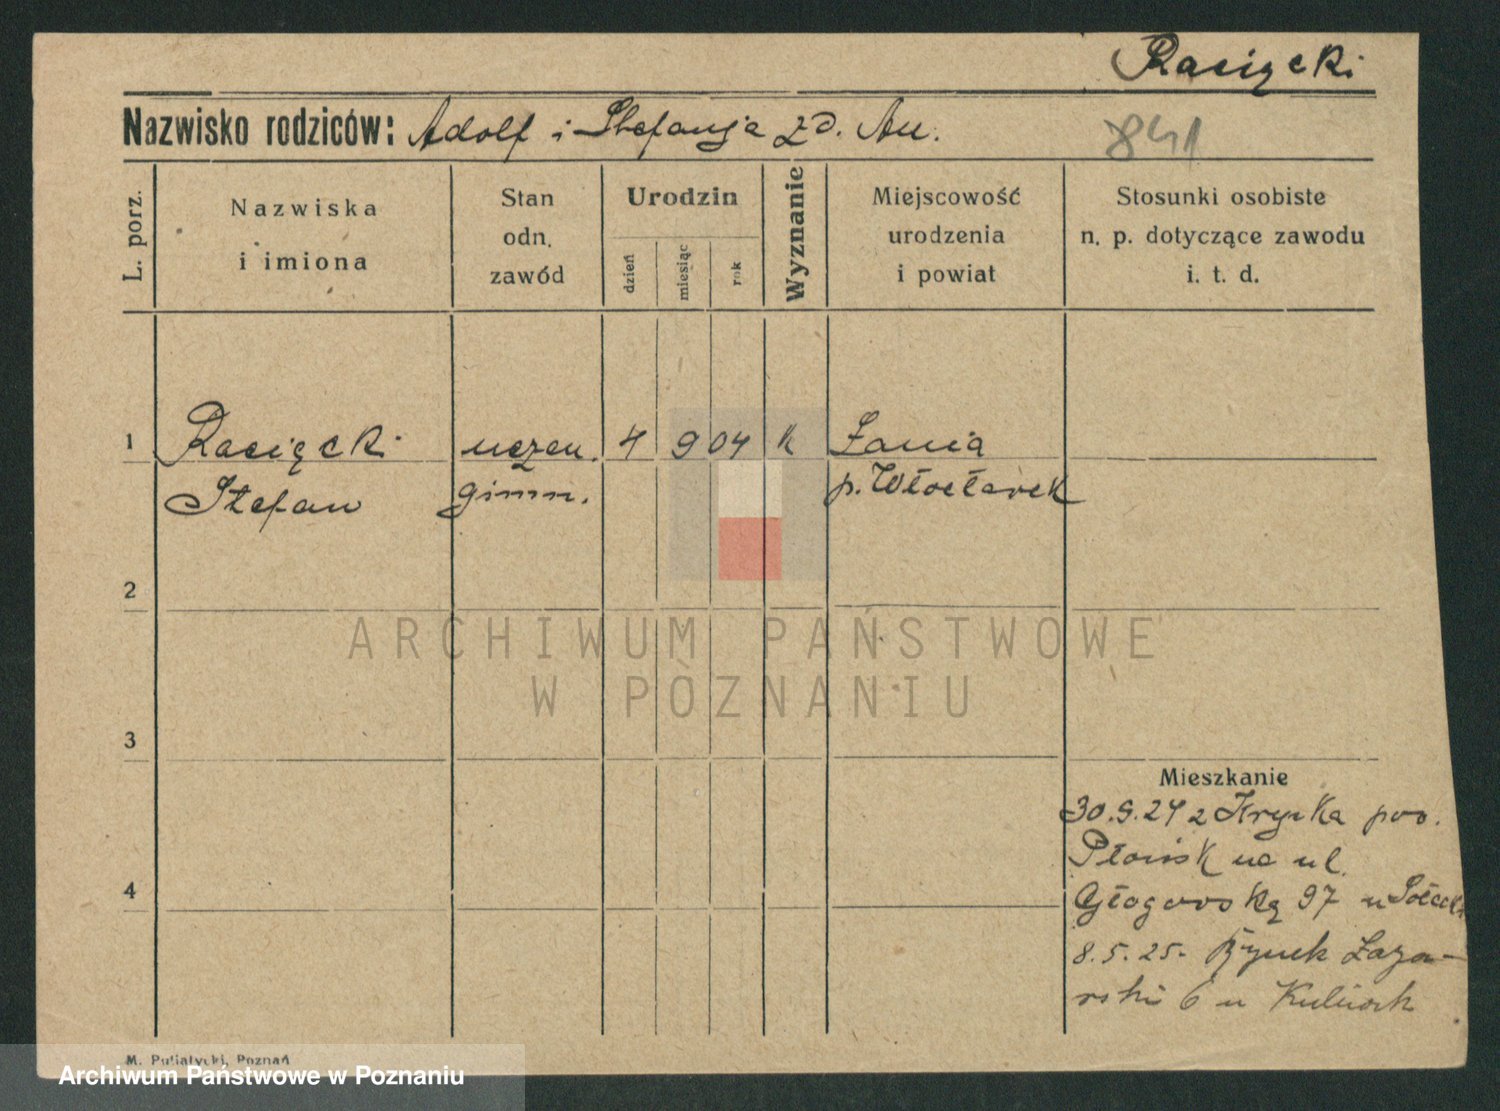 Racięcki
Nazwisko rodziców: Adolf i Stefanja zd. Au.
841
L. porz.
Nazwiska
i imiona
Stan
odn.
zawód
Urodzin
dzień
miesiąc
rok
Wyznanie
Miejscowość
urodzenia
i powiat
Stosunki osobiste
n. p. dotyczące zawodu
i. t. d.
1 Racięcki uczen. 4 9 04 k Łania
Stefan gimn. p. Włocławek
2
ARCHIWUM PAŃSTWOWE
W POZNANIU
3
Mieszkanie
30.9.24 z pow.
Płońsk na ul.
4
Głogowską 97 u
8.5.25. Rynek Łaza-
rski 6 u
M. Putiatycki, Poznań
Archiwum Państwowe w Poznaniu